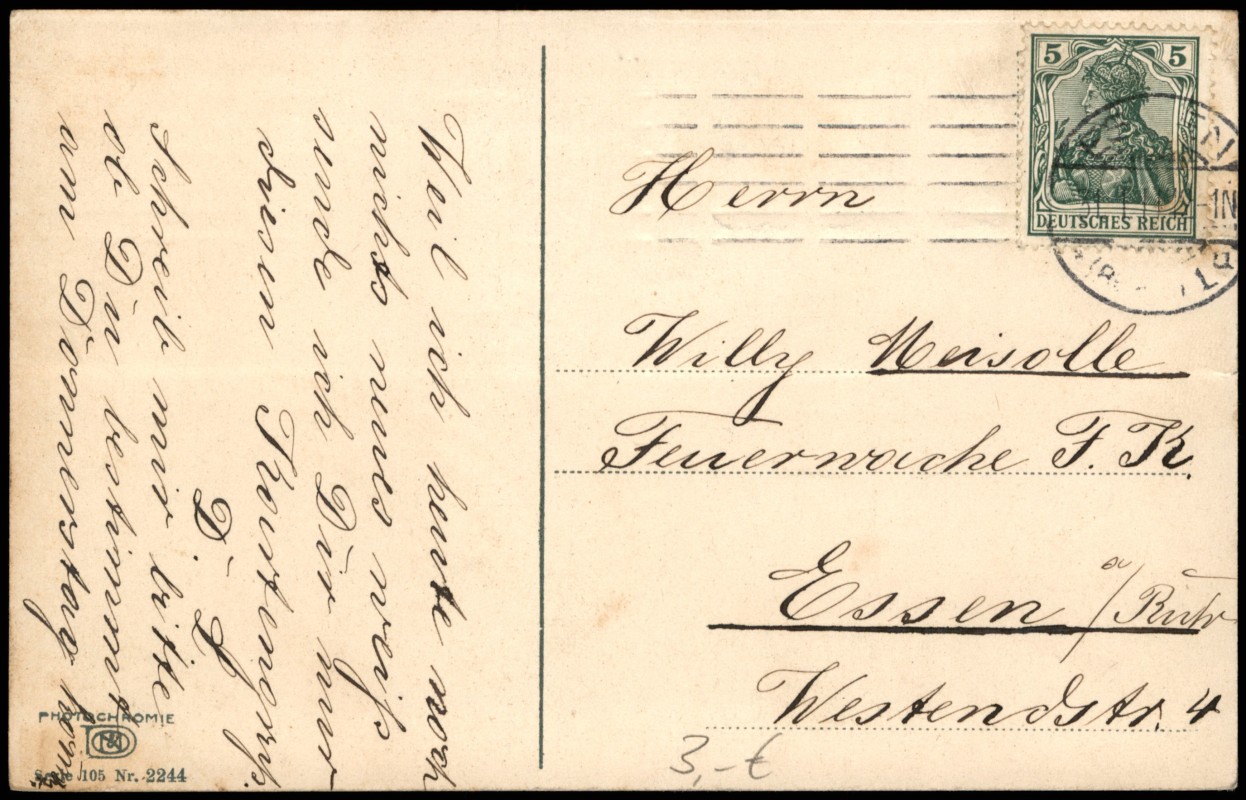 Weil ich heute noch
nichts neues weiß
sende ich Dir nur
diesen Kartengruß.
D. L
schreib mir bitte
ob Du bestimmt
am Donnerstag kommst
PHOTOCHROMIE
Serie 105 Nr. 2244
5 5
DEUTSCHES REICH
Herrn
Willy Meisolle
Feuerwache F. K.
Essen a/Ruhr
Westendstr. 4
3,-€